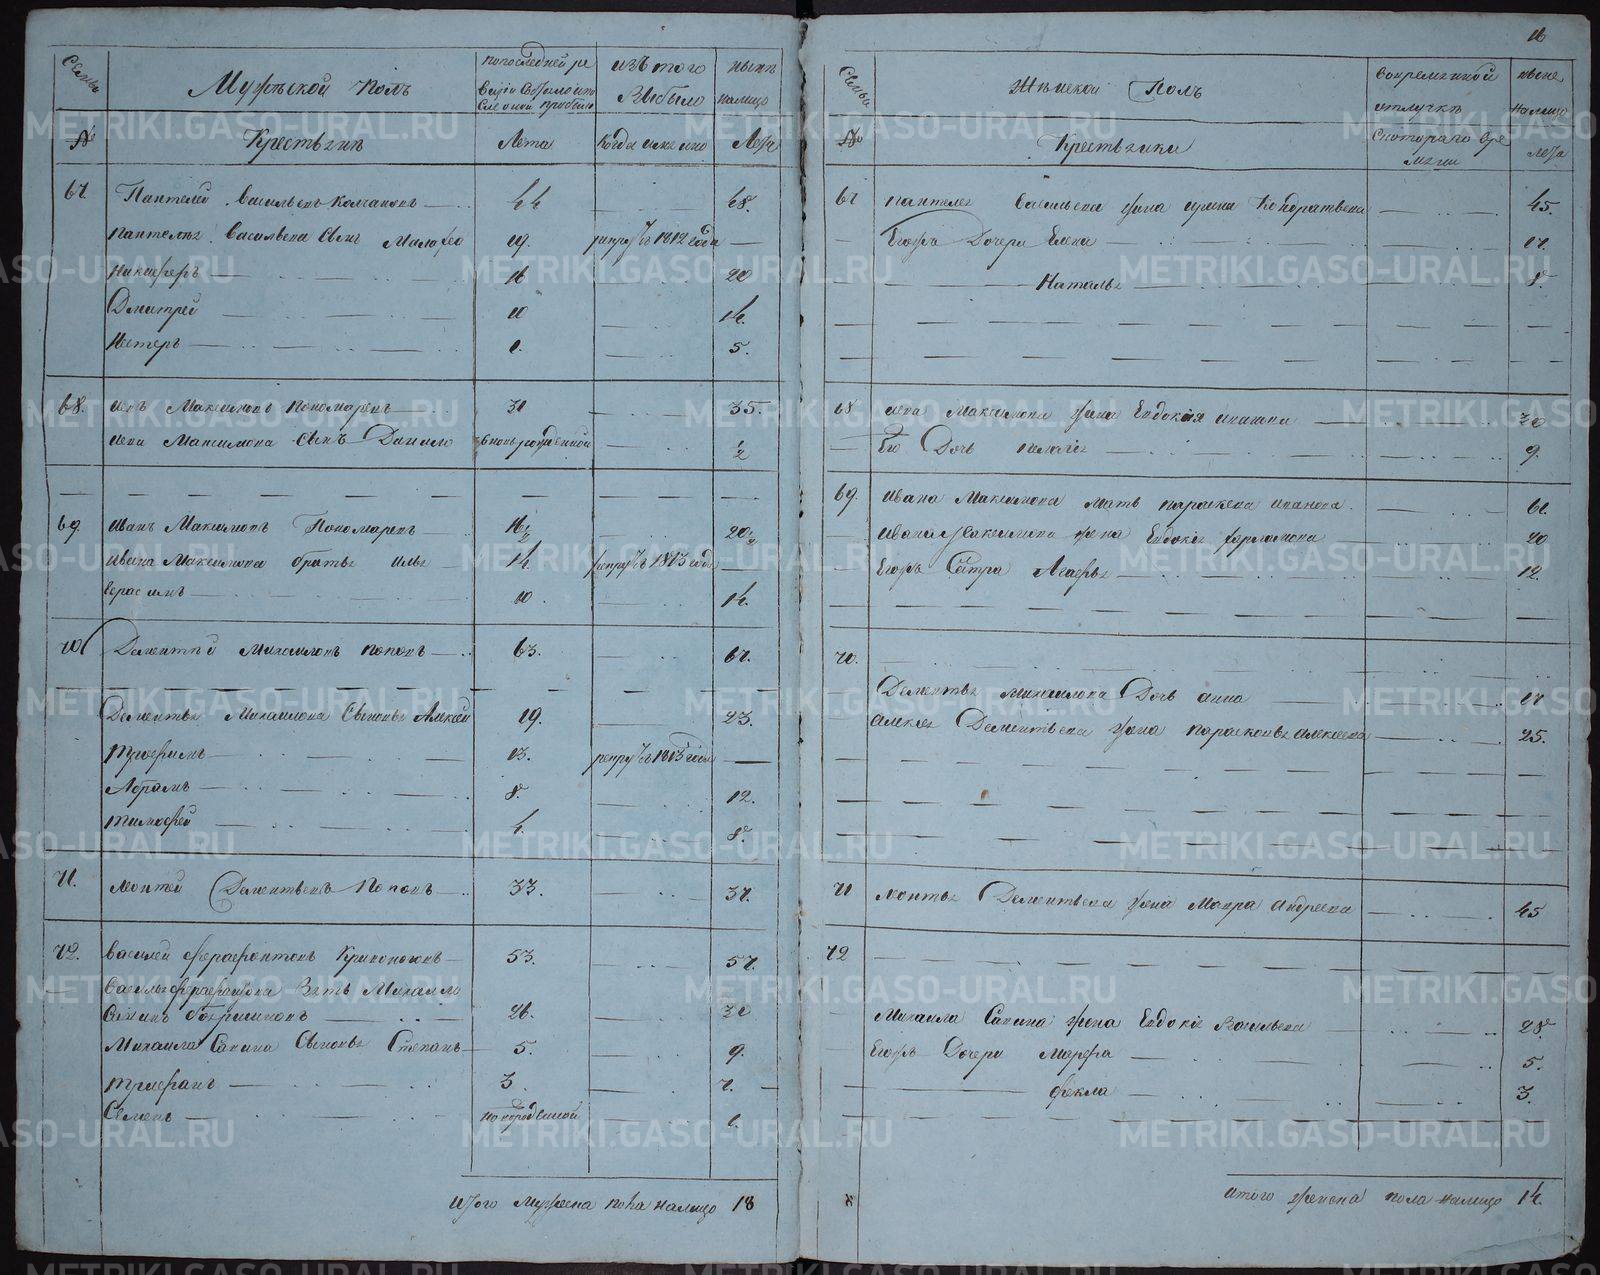 16
Семьи
Мужеской полъ
по последней ре
визіи состояло и по
сле оной прибыло
изъ того
выбыло
ныне
налицо
№
Крестьяне
Лета
когда именно
Лета
67. Пантелей Васильевъ Колчановъ 44 48.
Пантелея Васильева сынъ Малофео 19. рекрутъ 1812 года
Никиферъ 16 20
Дмитрей 10 14.
Нестеръ 1. 5.
68. Левъ Максимовъ Пономаревъ 31 35.
Лева Максимова сынъ Данило вновь рожденной ½
69. Иванъ Максимовъ Пономаревъ 16½ 20½
Ивана Максимова братья Илья 14. рекрутъ 1813 года
Герасимъ 10. 14.
70 Дементей Михаиловъ Поповъ 63. 67.
Дементья Михаилова сыновья Алексей 19. 23.
Трофимъ 13. рекрутъ 1813 года
Абрамъ 8. 12.
Тимофей 4. 8.
71. Леонтей Дементьевъ Поповъ 33. 37.
72. Василей Ферафонтовъ Кривоноговъ 53. 57.
Василья Ферафонтова зять Михаило
Савинъ 26. 30
Михаила Савина сыновья Степанъ 5. 9.
Трифанъ 3. 7.
Семенъ новорожденной 1.
Итого мужеска пола налицо 18
Семьи
Женской Полъ
во временной
отлучке
ныне
налицо
№
Крестьянки
с котораго вре
мени
лета
67 Пантелея Васильева жена Ирина Кондратьева 45.
Егожъ дочери Елена 17.
Наталья 8
68 Лева Максимова жена Евдокия 30
Его дочь Пелагея 9.
69. Ивана Максимова мать Параскева Иванова. 61.
Ивана Максимова жена Евдокия Харламова 20
Егожъ сестра Агафья 12.
70.
Дементья Михаилова дочь Анна 17
Алексея Дементьева жена Парасковья Алексеева 25.
71 Леонтья Дементьева жена Мавра Андреева 45
72
Михаила Савина жена Евдокия Васильева 28.
Егожъ дочери Марфа 5.
Фекла 3.
Итого женска пола налицо 14.
METRIKI.GASO-URAL.RU